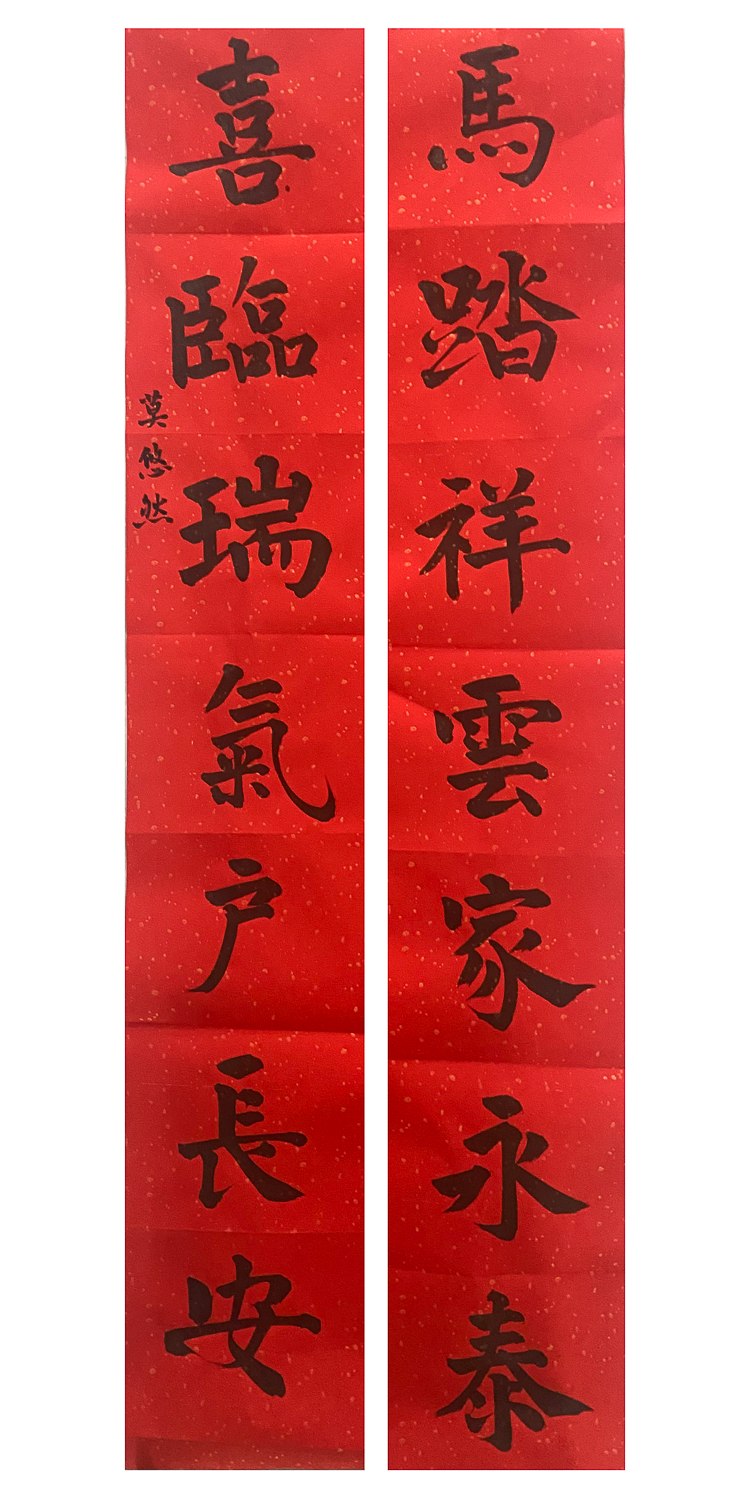 馬踏祥雲家永泰
喜臨瑞氣户長安
莫悠然